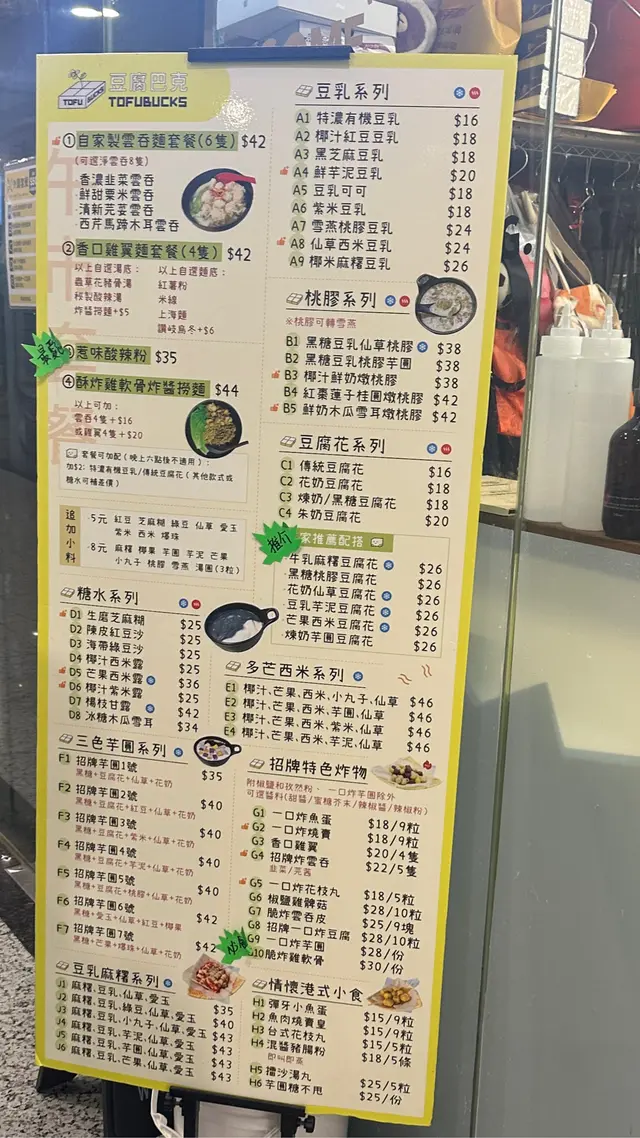 豆腐巴克
TOFU BUCKS
TOFUBUCKS
午市套餐
①自家製雲吞麵套餐(6隻) $42
(可選淨雲吞8隻)
·香濃韭菜雲吞
·鮮甜粟米雲吞
·清新芫荽雲吞
·西芹馬蹄木耳雲吞
②香口雞翼麵套餐(4隻) $42
以上自選湯底: 以上自選麵底:
蟲草花豬骨湯 紅薯粉
秘製酸辣湯 米線
炸醬撈麵+$5 上海麵
讚岐烏冬+$6
惹味酸辣粉 $35
④酥炸雞軟骨炸醬撈麵 $44
以上可加:
雲吞4隻+$16
或雞翼4隻+$20
套餐可加配(晚上六點後不適用):
加$2: 特濃有機豆乳/傳統豆腐花(其他款式或
糖水可補差價)
追加小料
·5元 紅豆 芝麻糊 綠豆 仙草 愛玉
紫米 西米 爆珠
·8元 麻糬 椰果 芋圓 芋泥 芒果
小丸子 桃膠 雪燕 湯圓(3粒)
糖水系列
D1 生磨芝麻糊 $25
D2 陳皮紅豆沙 $25
D3 海帶綠豆沙 $25
D4 椰汁西米露 $25
D5 芒果西米露 $36
D6 椰汁紫米露 $25
D7 楊枝甘露 $42
D8 冰糖木瓜雪耳 $34
三色芋圓系列
F1 招牌芋圓1號 $35
黑糖+豆腐花+仙草+花奶
F2 招牌芋圓2號 $40
黑糖+豆腐花+紅豆+仙草+花奶
F3 招牌芋圓3號 $40
黑糖+豆腐花+紫米+仙草+花奶
F4 招牌芋圓4號 $40
黑糖+豆腐花+芋泥+仙草+花奶
F5 招牌芋圓5號 $40
黑糖+豆腐花+桃膠+仙草+花奶
F6 招牌芋圓6號 $42
黑糖+愛玉+仙草+紅豆+椰果
F7 招牌芋圓7號 $42
黑糖+芒果+爆珠+仙草+花奶
豆乳麻糬系列
J1 麻糬、豆乳、仙草、愛玉 $35
J2 麻糬、豆乳、綠豆、仙草、愛玉 $40
J3 麻糬、豆乳、小丸子、仙草、愛玉 $43
J4 麻糬、豆乳、芋泥、仙草、愛玉 $43
J5 麻糬、豆乳、芋圓、仙草、愛玉 $43
J6 麻糬、豆乳、芒果、仙草、愛玉 $43
豆乳系列
A1 特濃有機豆乳 $16
A2 椰汁紅豆豆乳 $18
A3 黑芝麻豆乳 $18
A4 鮮芋泥豆乳 $20
A5 豆乳可可 $18
A6 紫米豆乳 $18
A7 雪燕桃膠豆乳 $24
A8 仙草西米豆乳 $24
A9 椰米麻糬豆乳 $26
桃膠系列
※桃膠可轉雪燕
B1 黑糖豆乳仙草桃膠 $38
B2 黑糖豆乳桃膠芋圓 $38
B3 椰汁鮮奶燉桃膠 $38
B4 紅棗蓮子桂圓燉桃膠 $42
B5 鮮奶木瓜雪耳燉桃膠 $42
豆腐花系列
C1 傳統豆腐花 $16
C2 花奶豆腐花 $18
C3 煉奶/黑糖豆腐花 $18
C4 朱奶豆腐花 $20
推介
家推薦配搭
牛乳麻糬豆腐花 $26
黑糖桃膠豆腐花 $26
花奶仙草豆腐花 $26
豆乳芋泥豆腐花 $26
芒果西米豆腐花 $26
煉奶芋圓豆腐花 $26
多芒西米系列
E1 椰汁、芒果、西米、小丸子、仙草 $46
E2 椰汁、芒果、西米、芋圓、仙草 $46
E3 椰汁、芒果、西米、紫米、仙草 $46
E4 椰汁、芒果、西米、芋泥、仙草 $46
招牌特色炸物
附椒鹽和孜然粉,一口炸芋圓除外
可選醬料(甜醬/蜜糖芥末/辣椒醬/辣椒粉)
G1 一口炸魚蛋 $18/9粒
G2 一口炸燒賣 $18/9粒
G3 香口雞翼 $20/4隻
G4 招牌炸雲吞 $22/5隻
韭菜/芫茜
G5 一口炸花枝丸 $18/5粒
G6 椒鹽雞髀菇 $28/10粒
G7 脆炸雲吞皮 $25/9塊
G8 招牌一口炸豆腐 $28/10粒
G9 一口炸芋圓 $28/份
G10 脆炸雞軟骨 $30/份
情懷港式小食
H1 彈牙小魚蛋 $15/9粒
H2 魚肉燒賣皇 $15/9粒
H3 台式花枝丸 $15/5粒
H4 混醬豬腸粉 $18/5條
即叫即蒸
H5 擂沙湯丸 $25/5粒
H6 芋圓糖不甩 $25/份